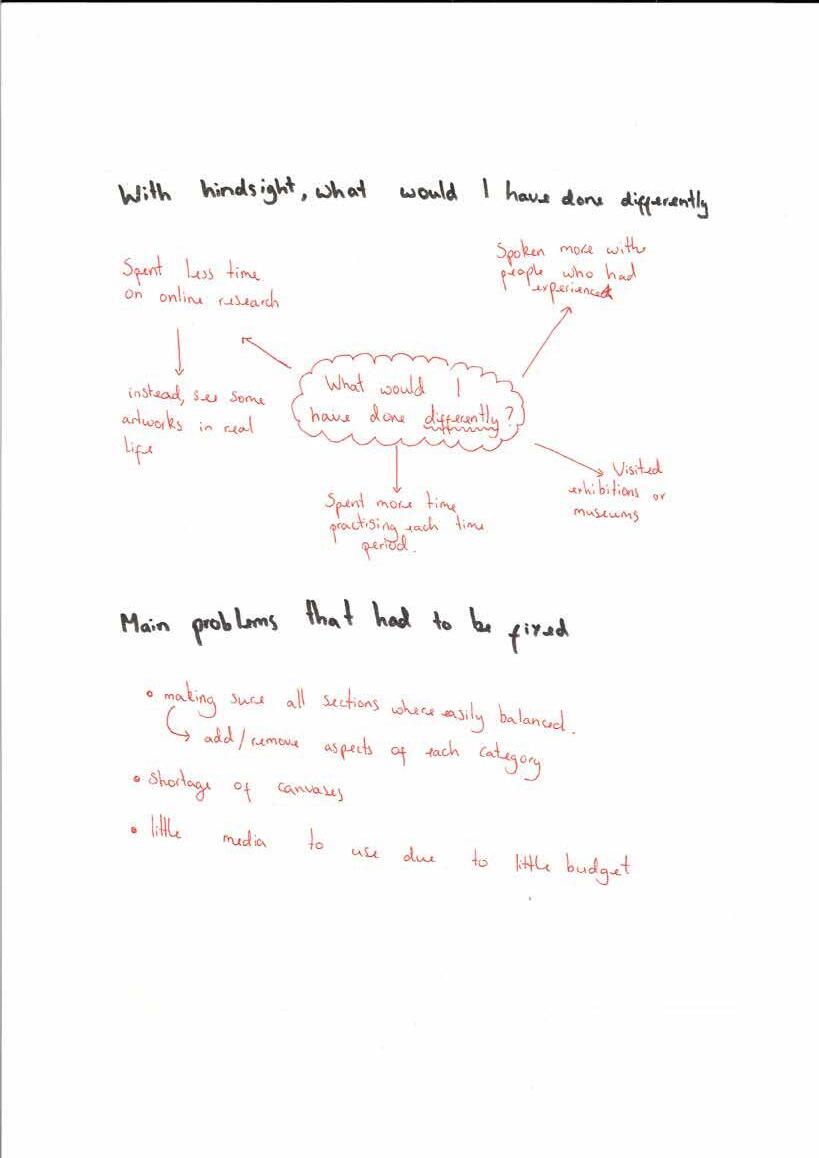 With hindsight, what would I have done differently
Spent less time
on online research
instead, see some
artworks in real
life
Spoken more with
people who had
experienced
What would I
have done differently?
Visited
exhibitions or
museums
Spent more time
practising each time
period.
Main problems that had to be fixed
• making sure all sections where easily balanced.
↳ add/remove aspects of each category
• shortage of canvases
• little media to use due to little budget